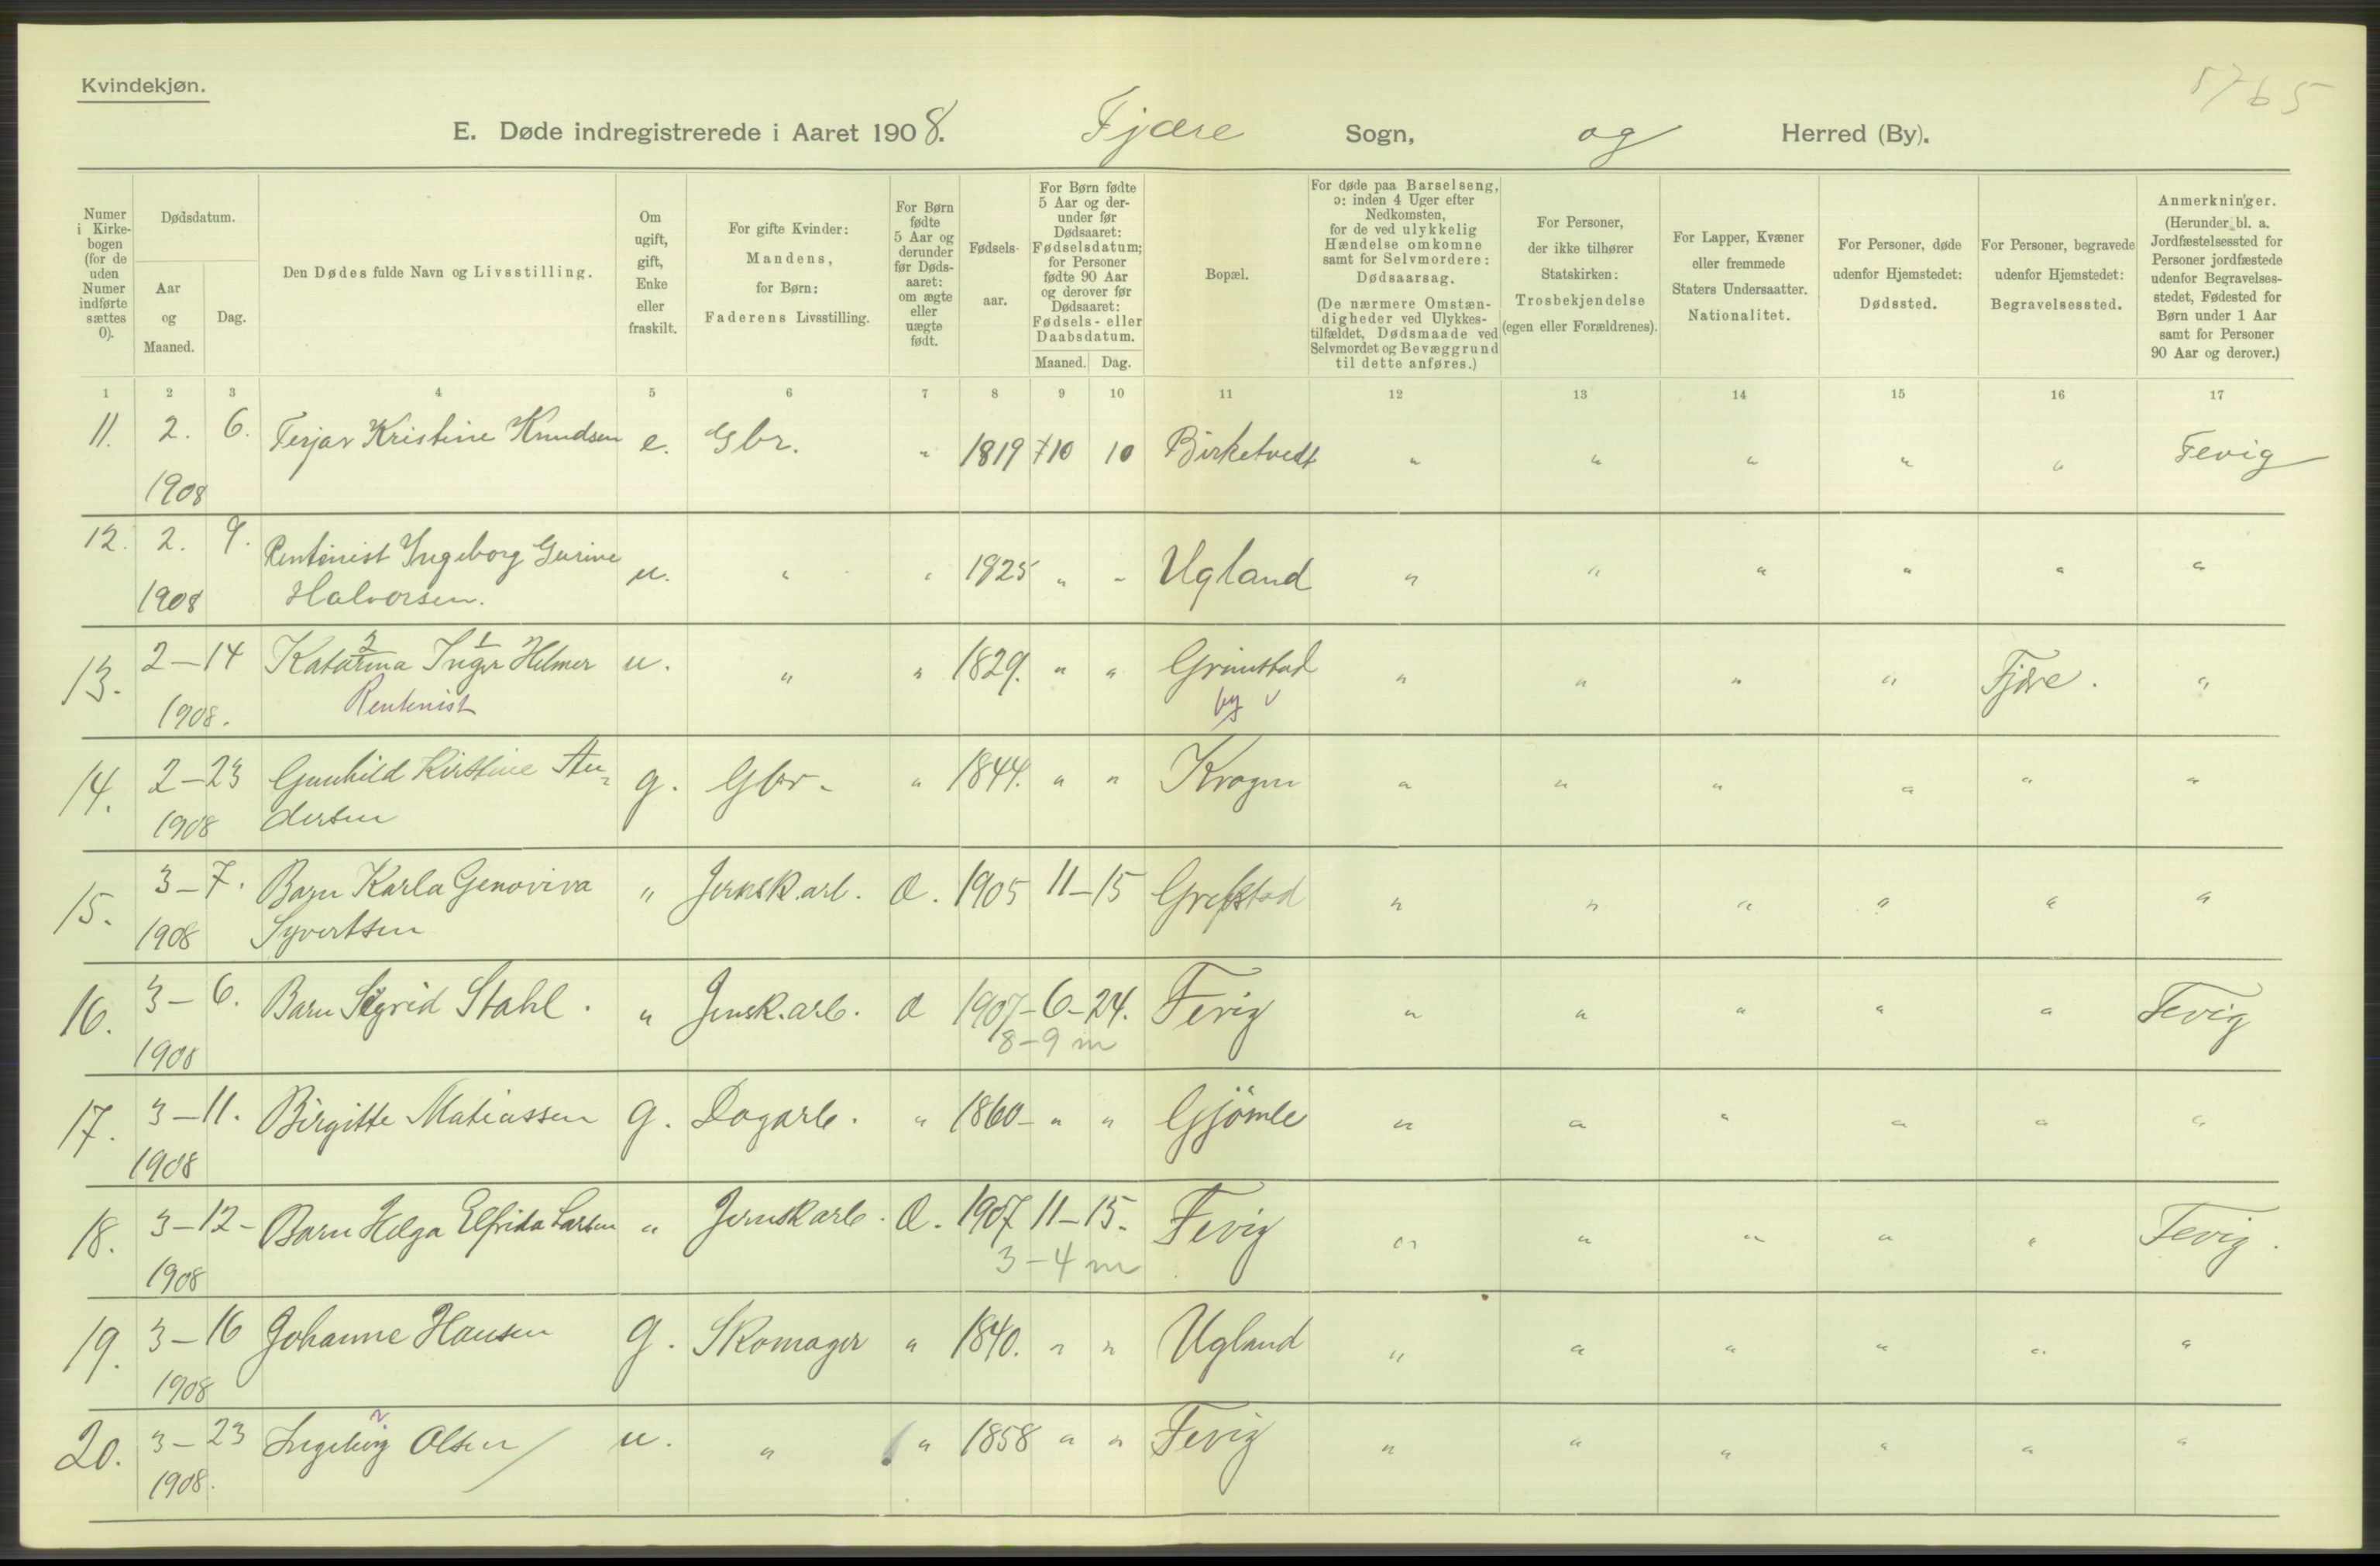 Kvindekjøn.
5765
E. Døde indregistrerede i Aaret 1908. Fjære Sogn, og Herred (By).
Numer i Kirkebogen (for de uden Numer indførte sættes 0).
Dødsdatum.
Aar og Maaned.
Dag.
Den Dødes fulde Navn og Livsstilling.
Om ugift, gift, Enke eller fraskilt.
For gifte Kvinder: Mandens, for Børn: Faderens Livsstilling.
For Børn fødte 5 Aar og derunder før Dødsaaret: om ægte eller uægte født.
Fødselsaar.
For Børn fødte 5 Aar og derunder før Dødsaaret: Fødselsdatum; for Personer fødte 90 Aar og derover før Dødsaaret: Fødsels- eller Daabsdatum.
Maaned. Dag.
Bopæl.
For døde paa Barselseng, ɔ: inden 4 Uger efter Nedkomsten, for de ved ulykkelig Hændelse omkomne samt for Selvmordere: Dødsaarsag.
(De nærmere Omstændigheder ved Ulykkestilfældet, Dødsmaade ved Selvmordet og Bevæggrund til dette anføres.)
For Personer, der ikke tilhører Statskirken: Trosbekjendelse (egen eller Forældrenes).
For Lapper, Kvæner eller fremmede Staters Undersaatter. Nationalitet.
For Personer, døde udenfor Hjemstedet: Dødssted.
For Personer, begravede udenfor Hjemstedet: Begravelsessted.
Anmerkninger.
(Herunder bl. a. Jordfæstelsessted for Personer jordfæstede udenfor Begravelsesstedet, Fødested for Børn under 1 Aar samt for Personer 90 Aar og derover.)
1 2 3 4 5 6 7 8 9 10 11 12 13 14 15 16 17
11. 2. 6. Terjar Kristine Knudsen e. Gbr. " 1819 10 10 Birketvedt " " " " " Fevig
1908
12. 2. 9. Rentenist Ingeborg Gurine u. " " 1825 " " Ugland " " " " " "
1908 Halvorsen.
2 1
13. 2-14 Katarina Inger Helmer u. " " 1829. " " Grimstad " " " " Fjære. "
1908. Rentenist by v
14. 2-23 Gunhild Kirstine An- g. Gbr. " 1844. " " Krogen " " " " " "
1908 dersen
15. 3-7. Barn Karla Genoviva " Jernsk.arb. Æ. 1905 11-15 Grefstad " " " " " "
1908 Syvertsen
16. 3-6. Barn Sigrid Stahl. " Jernsk.arb. Æ 1907-6-24. Fevig " " " " " Fevig
1908 8-9 m
17. 3-11. Birgitte Matiassen g. Dagarb. " 1860- " " Gjömle " " " " " "
1908
18. 3-12- Barn Helga Elfrida Larsen " Jernskarb. Æ. 1907 11-15. Fevig " " " " " Fevig.
1908 3-4 m
19. 3-16 Johanne Hansen g. Skomager " 1840. " " Ugland " " " " " "
1908
20. 3-23 Ingeborg Olsen u. " " 1858 " " Fevig " " " " " "
1908.